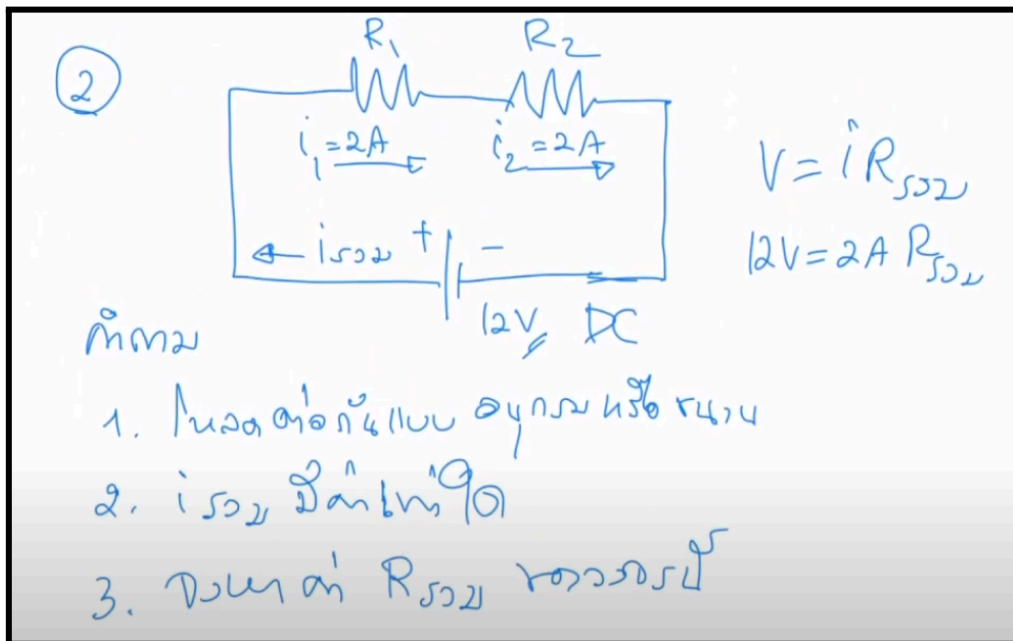 R₁ R₂
②
i₁=2A i₂=2A
V = i Rรวม
iรวม + −
12V = 2A Rรวม
12V DC
คำถาม
1. โหลดต่อกันแบบ อนุกรมหรือขนาน
2. i รวม มีค่าเท่าใด
3. จงหาค่า Rรวม ของวงจรนี้